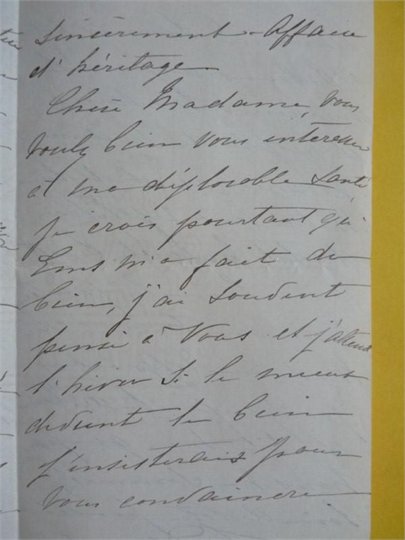 sincèrement. Affaire
d'héritage
Chère Madame, vous
voulez bien vous intéresser
à ma déplorable santé
je crois pourtant qu'
Ems m'a fait du
bien, j'ai souvent
pensé à vous et j'attend
l'hiver si le mieux
devient le bien
j'insisterais pour
vous convaincre.